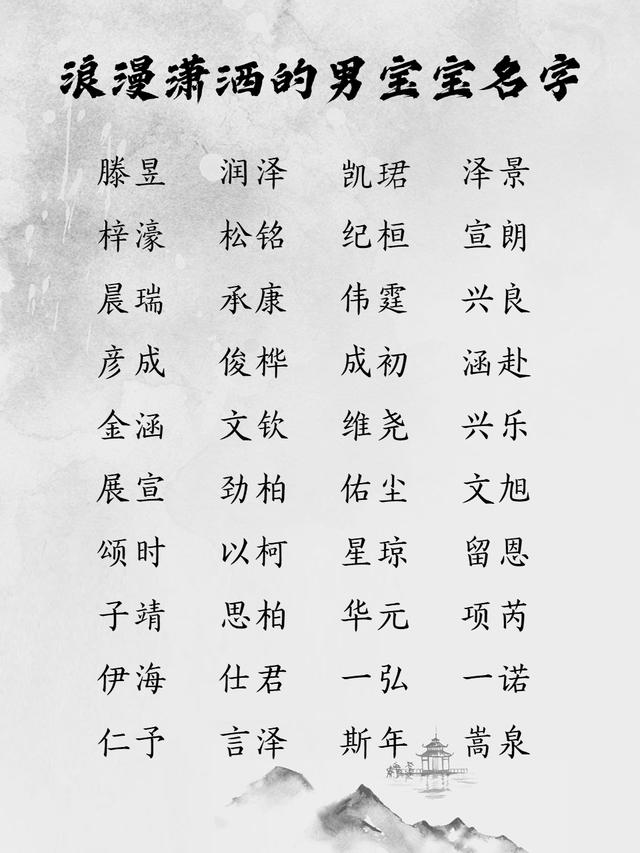 浪漫潇洒的男宝宝名字
滕昱 润泽 凯珺 泽景
梓濠 松铭 纪桓 宣朗
晨瑞 承康 伟霆 兴良
彦成 俊桦 成初 涵赴
金涵 文钦 维尧 兴乐
展宣 劲柏 佑尘 文旭
颂时 以柯 星琼 留恩
子靖 思柏 华元 项芮
伊海 仕君 一弘 一诺
仁予 言泽 斯年 嵩泉